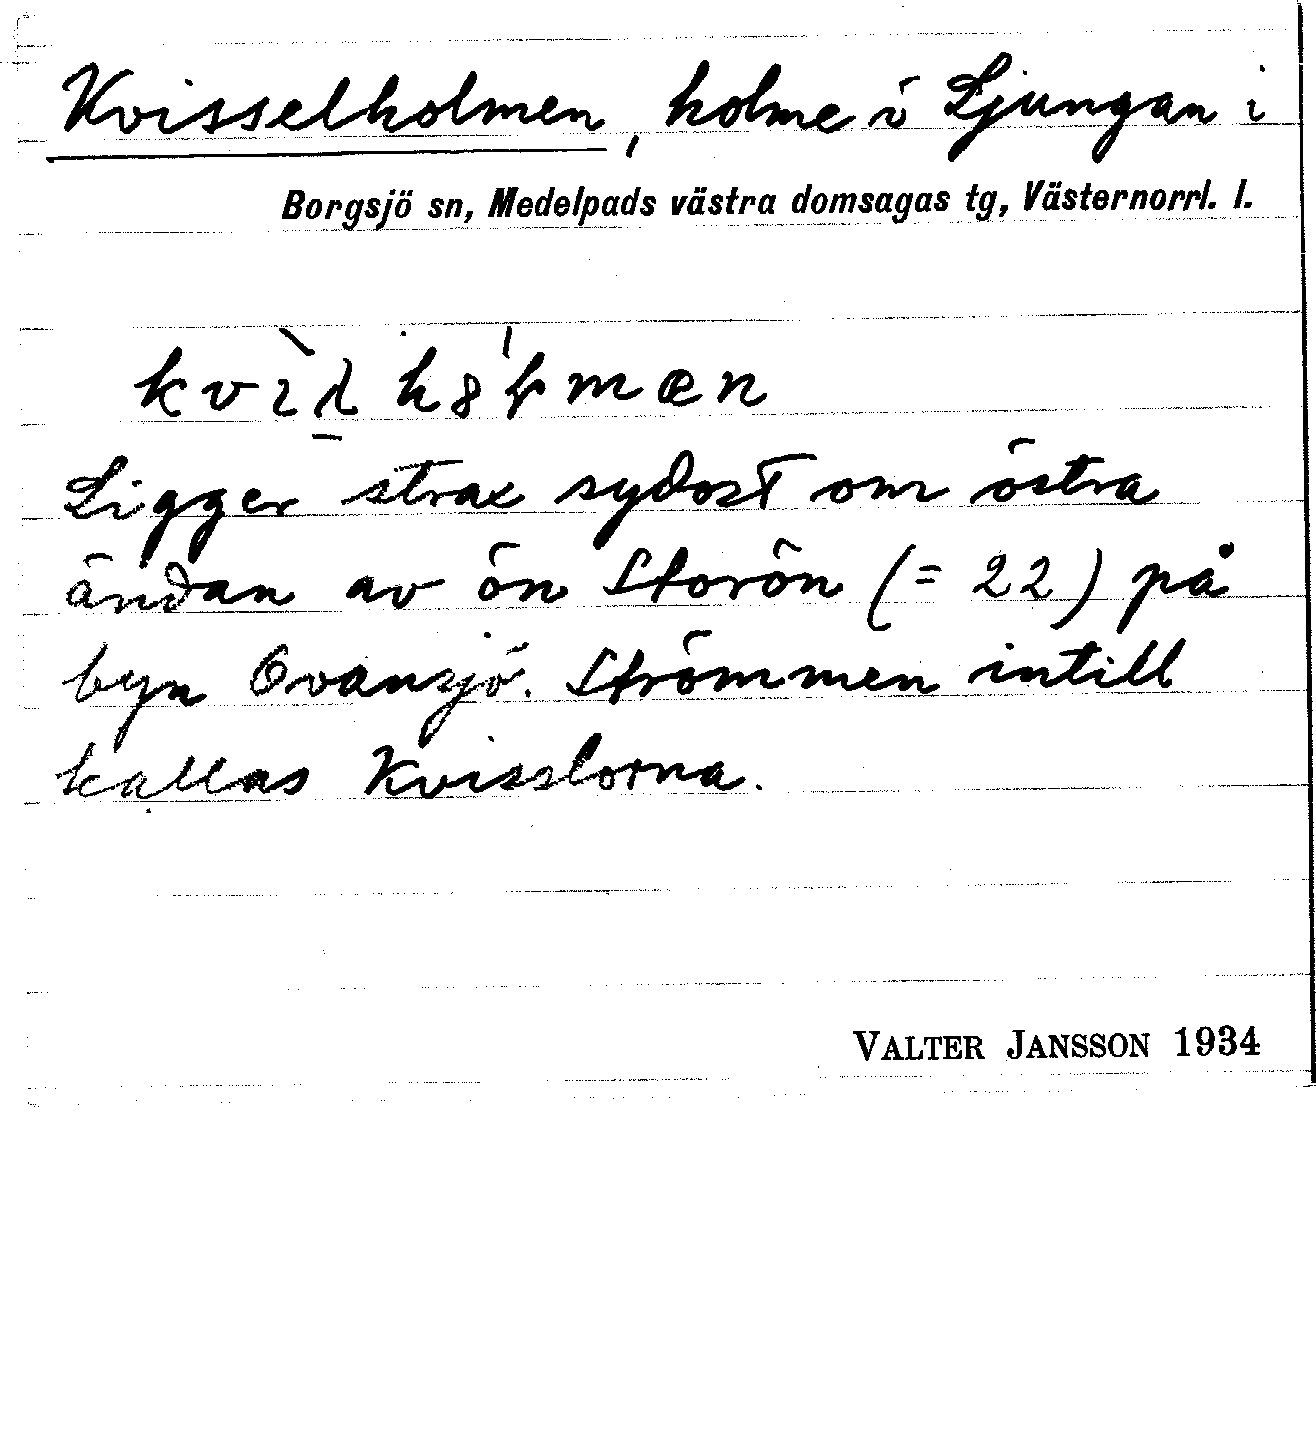 Kvisselholmen, holme i Ljungan i
Borgsjö sn, Medelpads västra domsagas tg, Västernorrl. l.
Ligger strax sydost om östra
ändan av ön Storön (= 22) på
byn Ovansjö. Strömmen intill
kallas Kvisslorna.
VALTER JANSSON 1934